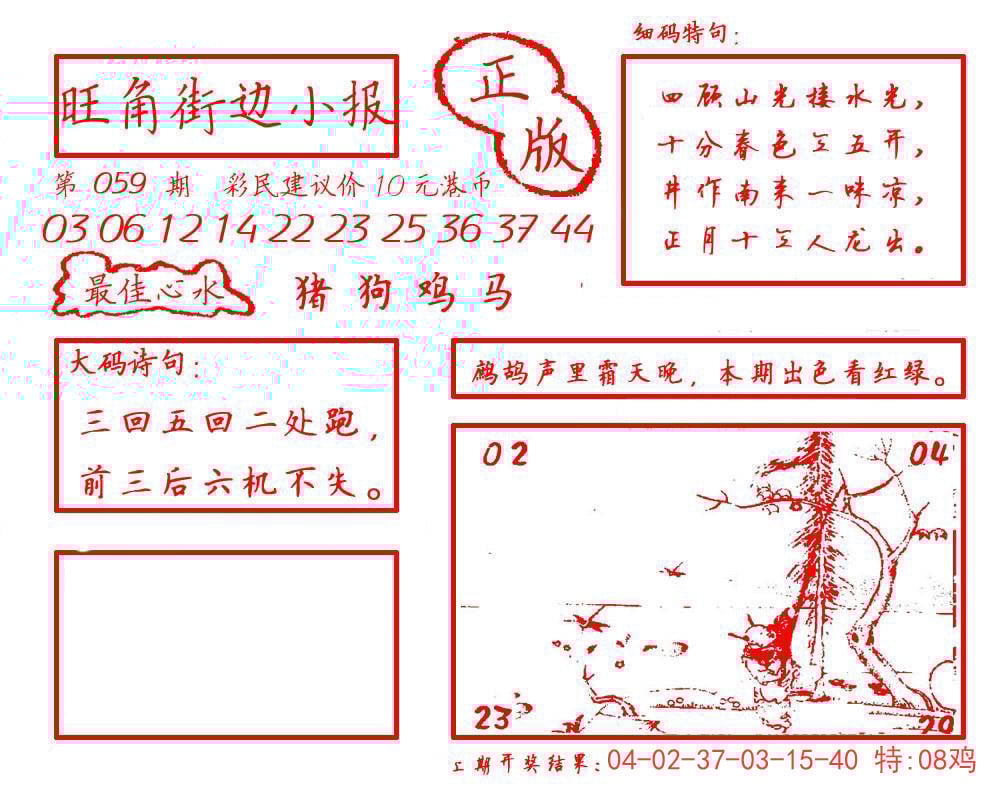 细码特句:
旺角街边小报
正版
四顾山光接水光,
十分春色三五开,
井作南来一味凉,
正月十三人龙出。
第 059 期 彩民建议价 10 元港币
03 06 12 14 22 23 25 36 37 44
最佳心水 猪 狗 鸡 马
大码诗句:
三回五回二处跑,
前三后六机不失。
鹧鸪声里霜天晚,本期出色看红绿。
02 04
23 29
上期开奖结果:04-02-37-03-15-40 特:08鸡